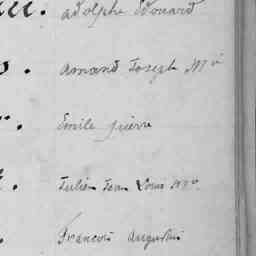 adolphe Edouard
Amand Joseph Mie
Emile pierre
Julien Jean Louis
francois augustin